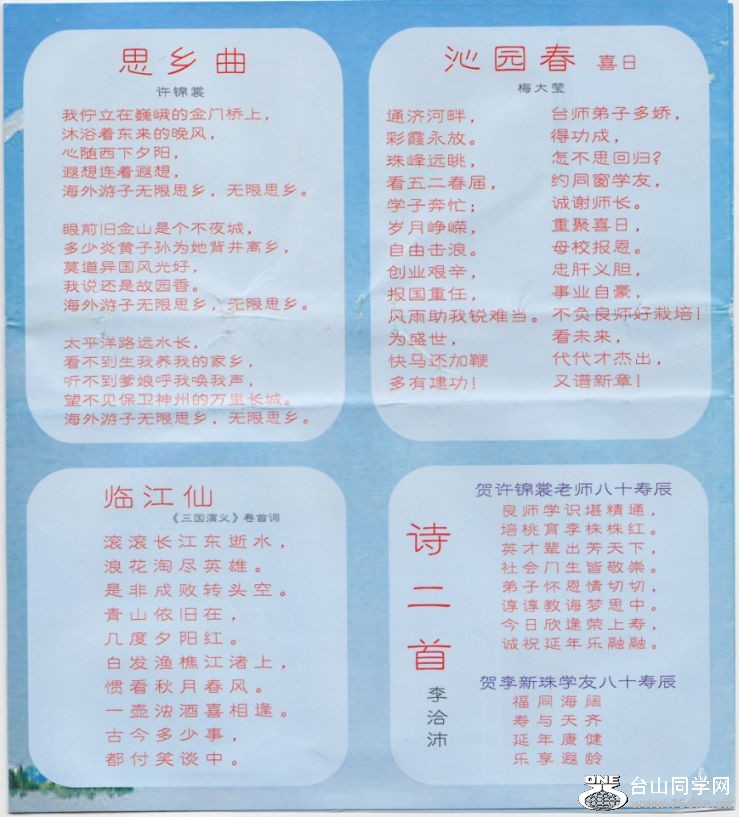 思乡曲
许锦裳
我伫立在巍峨的金门桥上，
沐浴着东来的晚风，
心随西下夕阳，
遐想连着遐想，
海外游子无限思乡，无限思乡。
眼前旧金山是个不夜城，
多少炎黄子孙为她背井离乡，
莫道异国风光好，
我说还是故园香。
海外游子无限思乡，无限思乡。
太平洋路远水长，
看不到生我养我的家乡，
听不到爹娘呼我唤我声，
望不见保卫神州的万里长城。
海外游子无限思乡，无限思乡。
沁园春 喜日
梅大莹
通济河畔，
彩霞永放。
珠峰远眺，
看五二春届，
学子奔忙；
岁月峥嵘，
自由击浪。
创业艰辛，
报国重任，
风雨助我锐难当。
为盛世，
快马还加鞭
多有建功！
台师弟子多娇，
得功成，
怎不思回归？
约同窗学友，
诚谢师长。
重聚喜日，
母校报恩。
忠肝义胆，
事业自豪，
不负良师好栽培！
看未来，
代代才杰出，
又谱新章！
临江仙
《三国演义》卷首词
滚滚长江东逝水，
浪花淘尽英雄。
是非成败转头空。
青山依旧在，
几度夕阳红。
白发渔樵江渚上，
惯看秋月春风。
一壶浊酒喜相逢。
古今多少事，
都付笑谈中。
诗二首
李洽沛
贺许锦裳老师八十寿辰
良师学识堪精通，
培桃育李株株红。
英才辈出芳天下，
社会门生皆敬崇。
弟子怀恩情切切，
谆谆教诲梦思中。
今日欣逢荣上寿，
诚祝延年乐融融。
贺李新珠学友八十寿辰
福同海阔
寿与天齐
延年康健
乐享遐龄
ONE
台山同学网